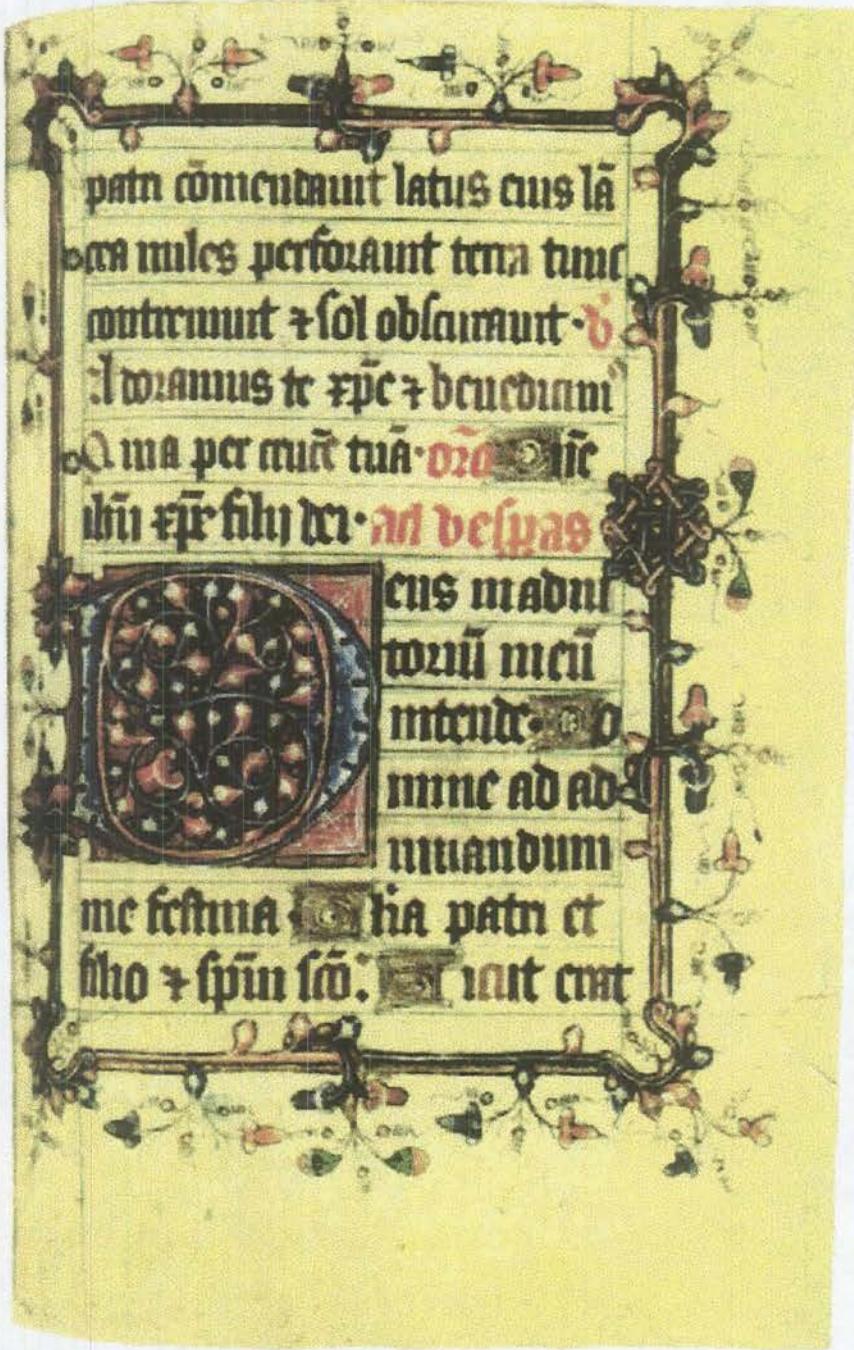 patri cōmendauit latus eius lā
cea miles perforauit terra tunc
contremuit ⁊ sol obscurauit · v̓
Adoramus te xp̄e ⁊ benedicim᷒
Quia per crucē tuā · orō Dn̄e
ihū xp̄e fili dei · ad vesp̄as
Deus in adiut
toriū meū
intende · Do
mine ad ad
iuuandum
me festina · Glīa patri et
filio ⁊ spūi scō : Sicut erat